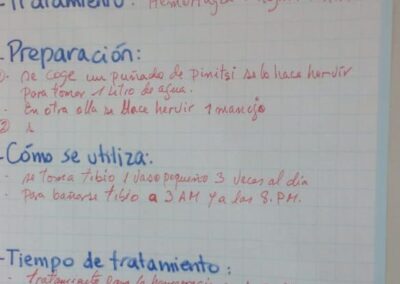 -Tratamiento: Hemorragia
-Preparación:
①- se coge un puñado de pinitsi se lo hace hervir
para tomar 1 litro de agua.
- En otra olla se hace hervir 1 manejo
②
-Cómo se utiliza:
- se toma tibio 1 vaso pequeño 3 veces al día
- Para bañarse tibio a 3 AM y a las 8. P.M.
-Tiempo de tratamiento:
- tratamiento para la hemorragia